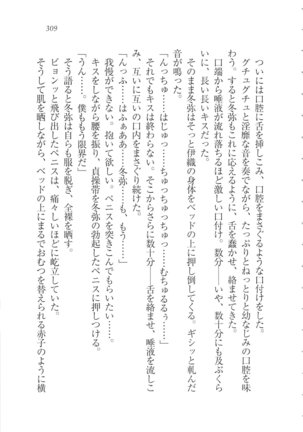 309
ついには口腔に舌を挿しこみ、口腔をまさぐるような口付けをした。
グチュグチュと淫靡な音を奏でながら、たっぷりとねっとりと幼なじみの口腔を味
わう。すると冬弥もこれに応えるように、舌を蠢かせ、絡ませてきた。
口端から唾液が流れ落ちるほど激しい口付け。数分――いや、数十分にも及ぶくら
いに、長い長いキスだった。
そのまま冬弥はそっと伊織の身体をベッドの上に押し倒してくる。ギシッと軋んだ
音が鳴った。
「んっちゅ……はっちゅ……んちゅうう……」
それでもキスは終わらない。そこからさらに数十分――舌を絡ませ、唾液を流しこ
み、互いに互いの口内をまさぐり続けた。
「んっふ……はふぁああ……冬弥……も、もう……」
我慢ができない。抱いて欲しい。ペニスを突きこんでもらいたい……。
キスをしながら腰を振り、貞操帯を冬弥の勃起したペニスに押しつける。
「うん……。僕ももう限界だ」
そう語ると冬弥は自らも服を脱ぎ、全裸を晒す。
ビョンッと飛び出したペニスは、痛々しいほどに屹立していた。
そうして肌を晒しながら、ベッドの上にまるでおむつを替えられる赤子のように横